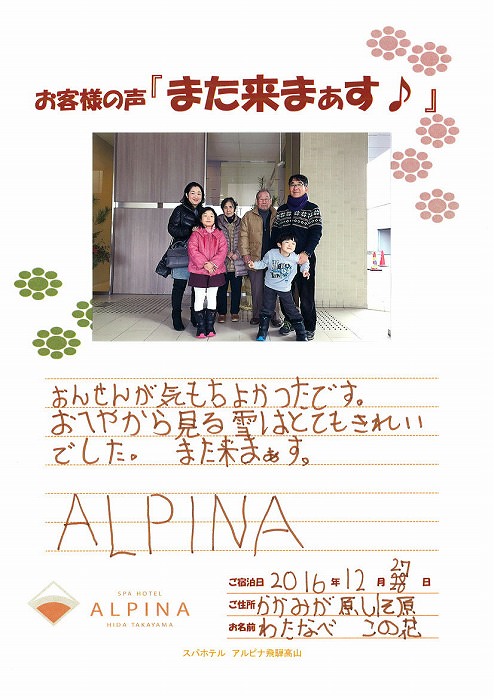 お客様の声『また来まぁす♪』
おんせんが気もちよかったです。
おへやから見る雪はとてもきれい
でした。 また来まぁす。
ALPINA
SPA HOTEL
ALPINA
HIDA TAKAYAMA
27
ご宿泊日 2016年12月28日
ご住所 かかみが原し
お名前 わたなべ この花
スパホテル アルピナ飛騨高山